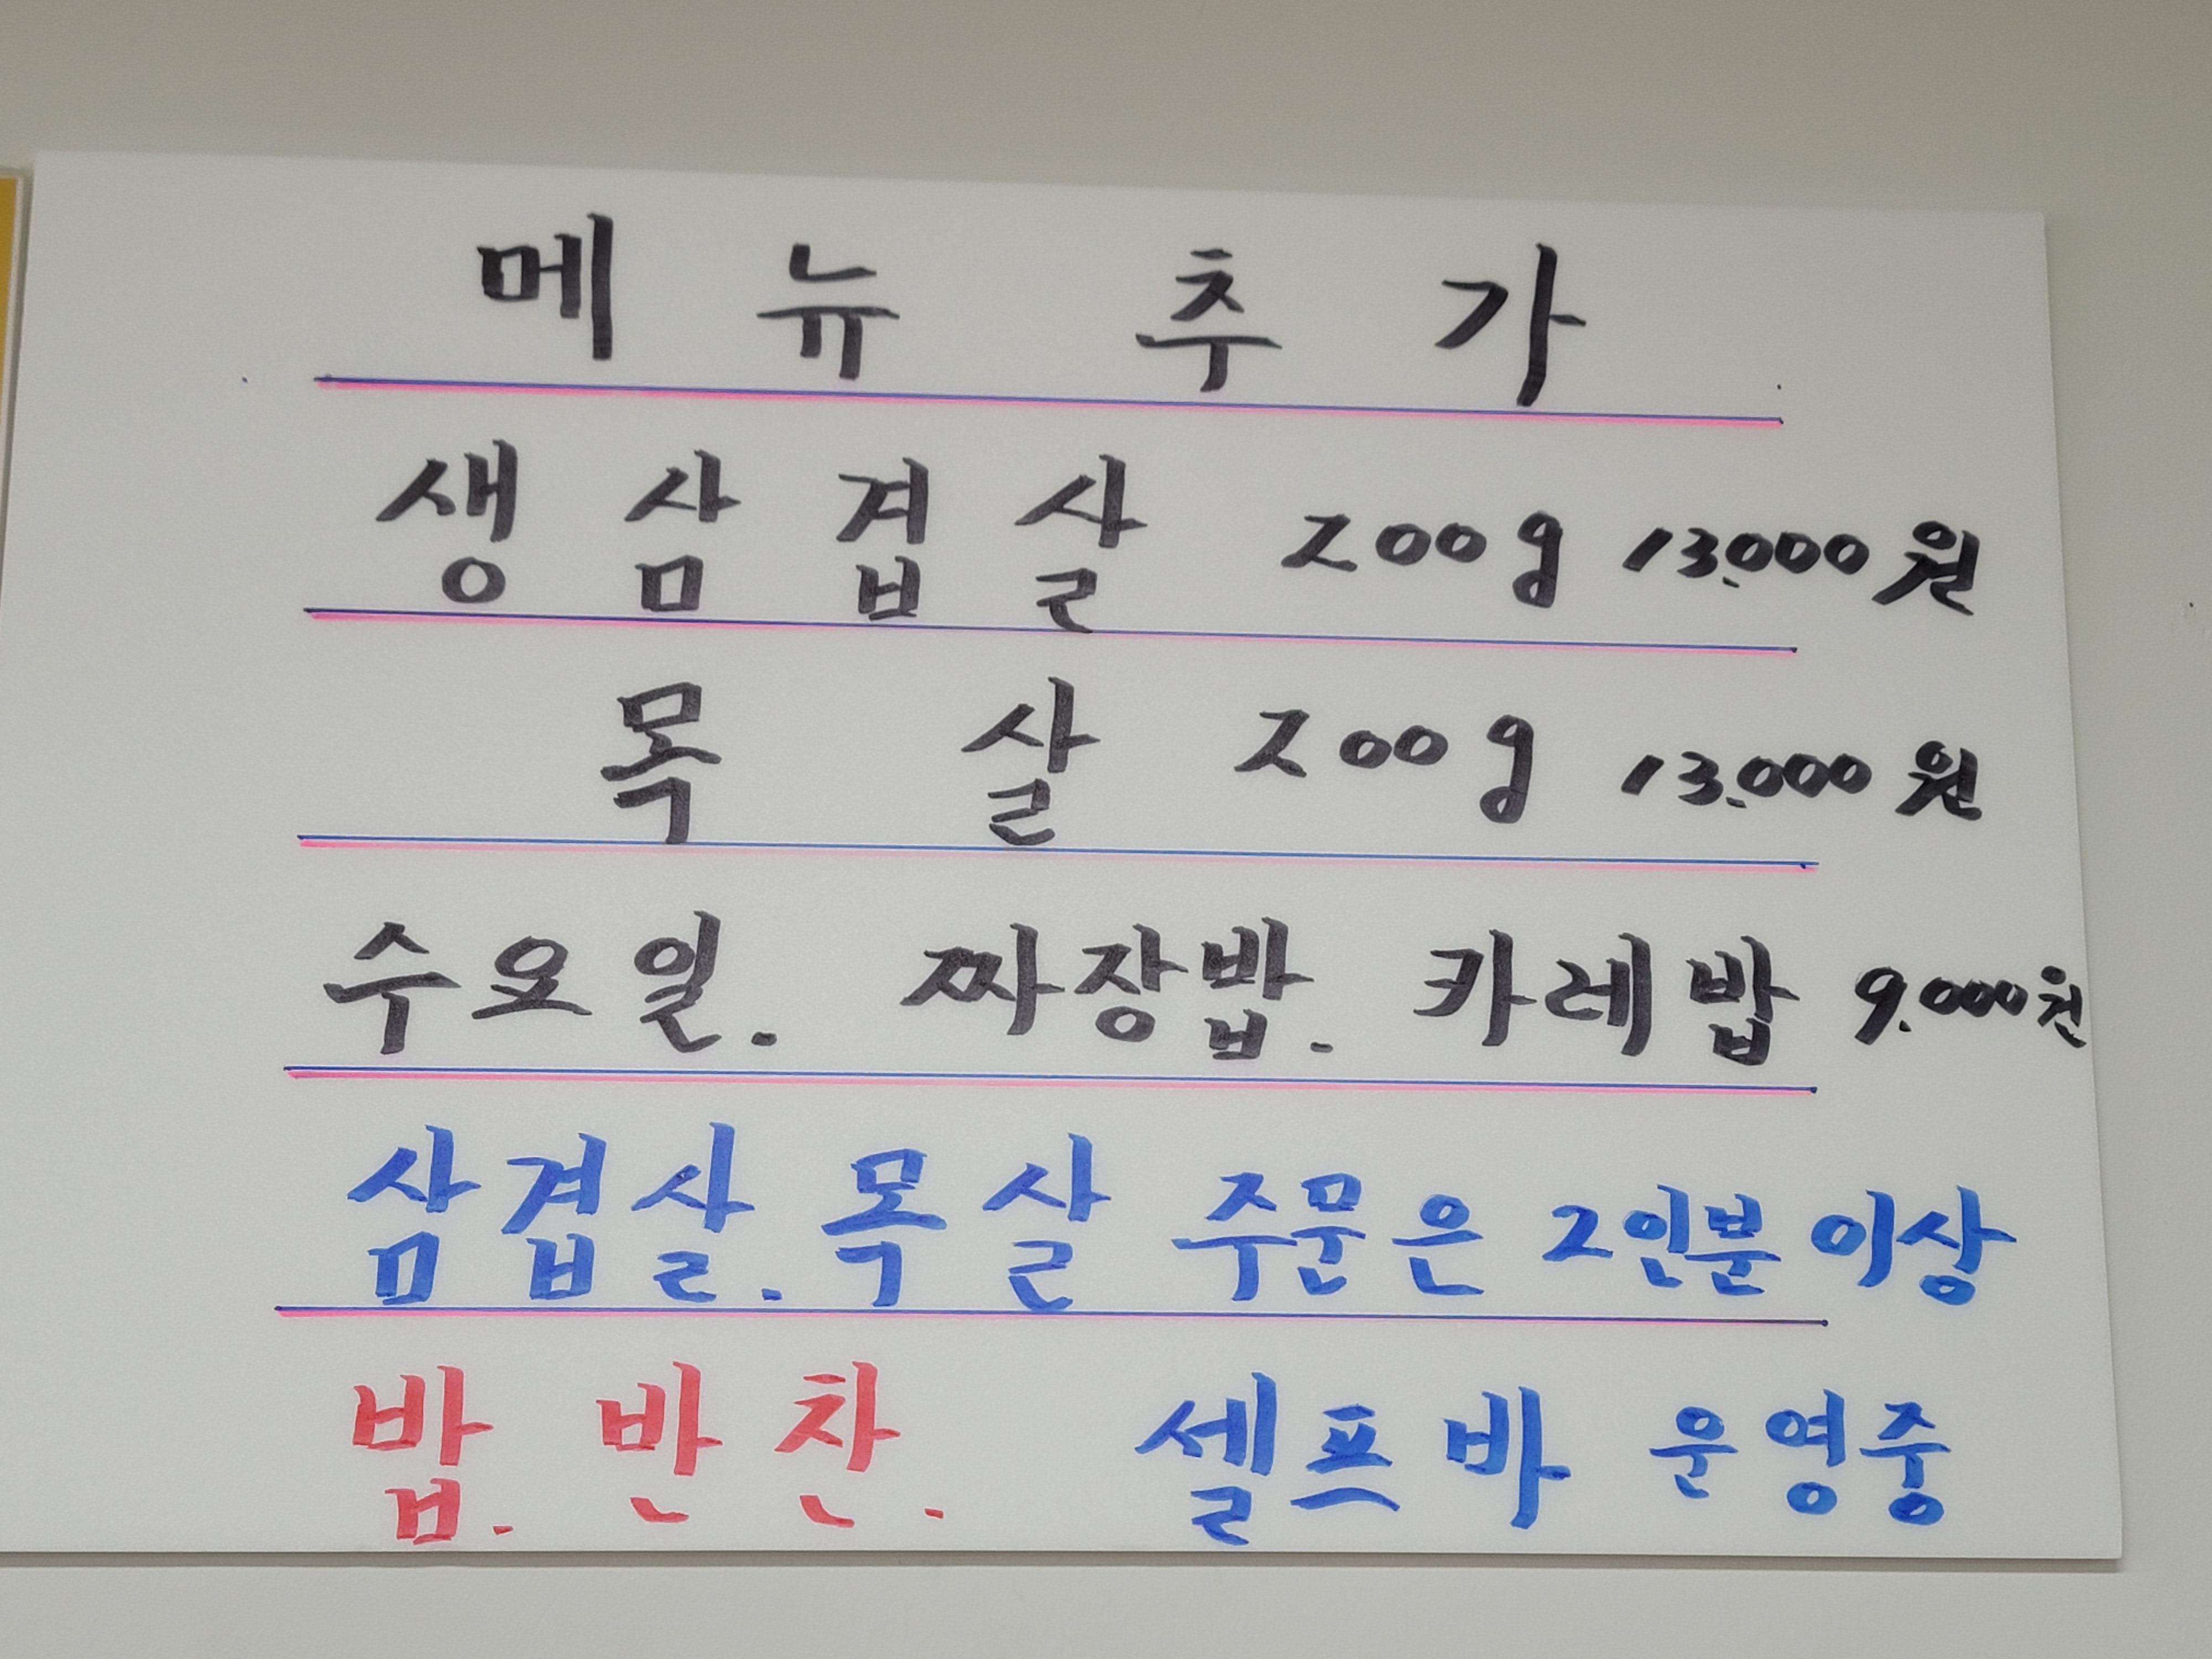 메뉴 추가
생삼겹살 200g 13.000원
목살 200g 13.000원
수요일. 짜장밥. 카레밥 9.000원
삼겹살. 목살 주문은 2인분 이상
밥. 반찬. 셀프바 운영중